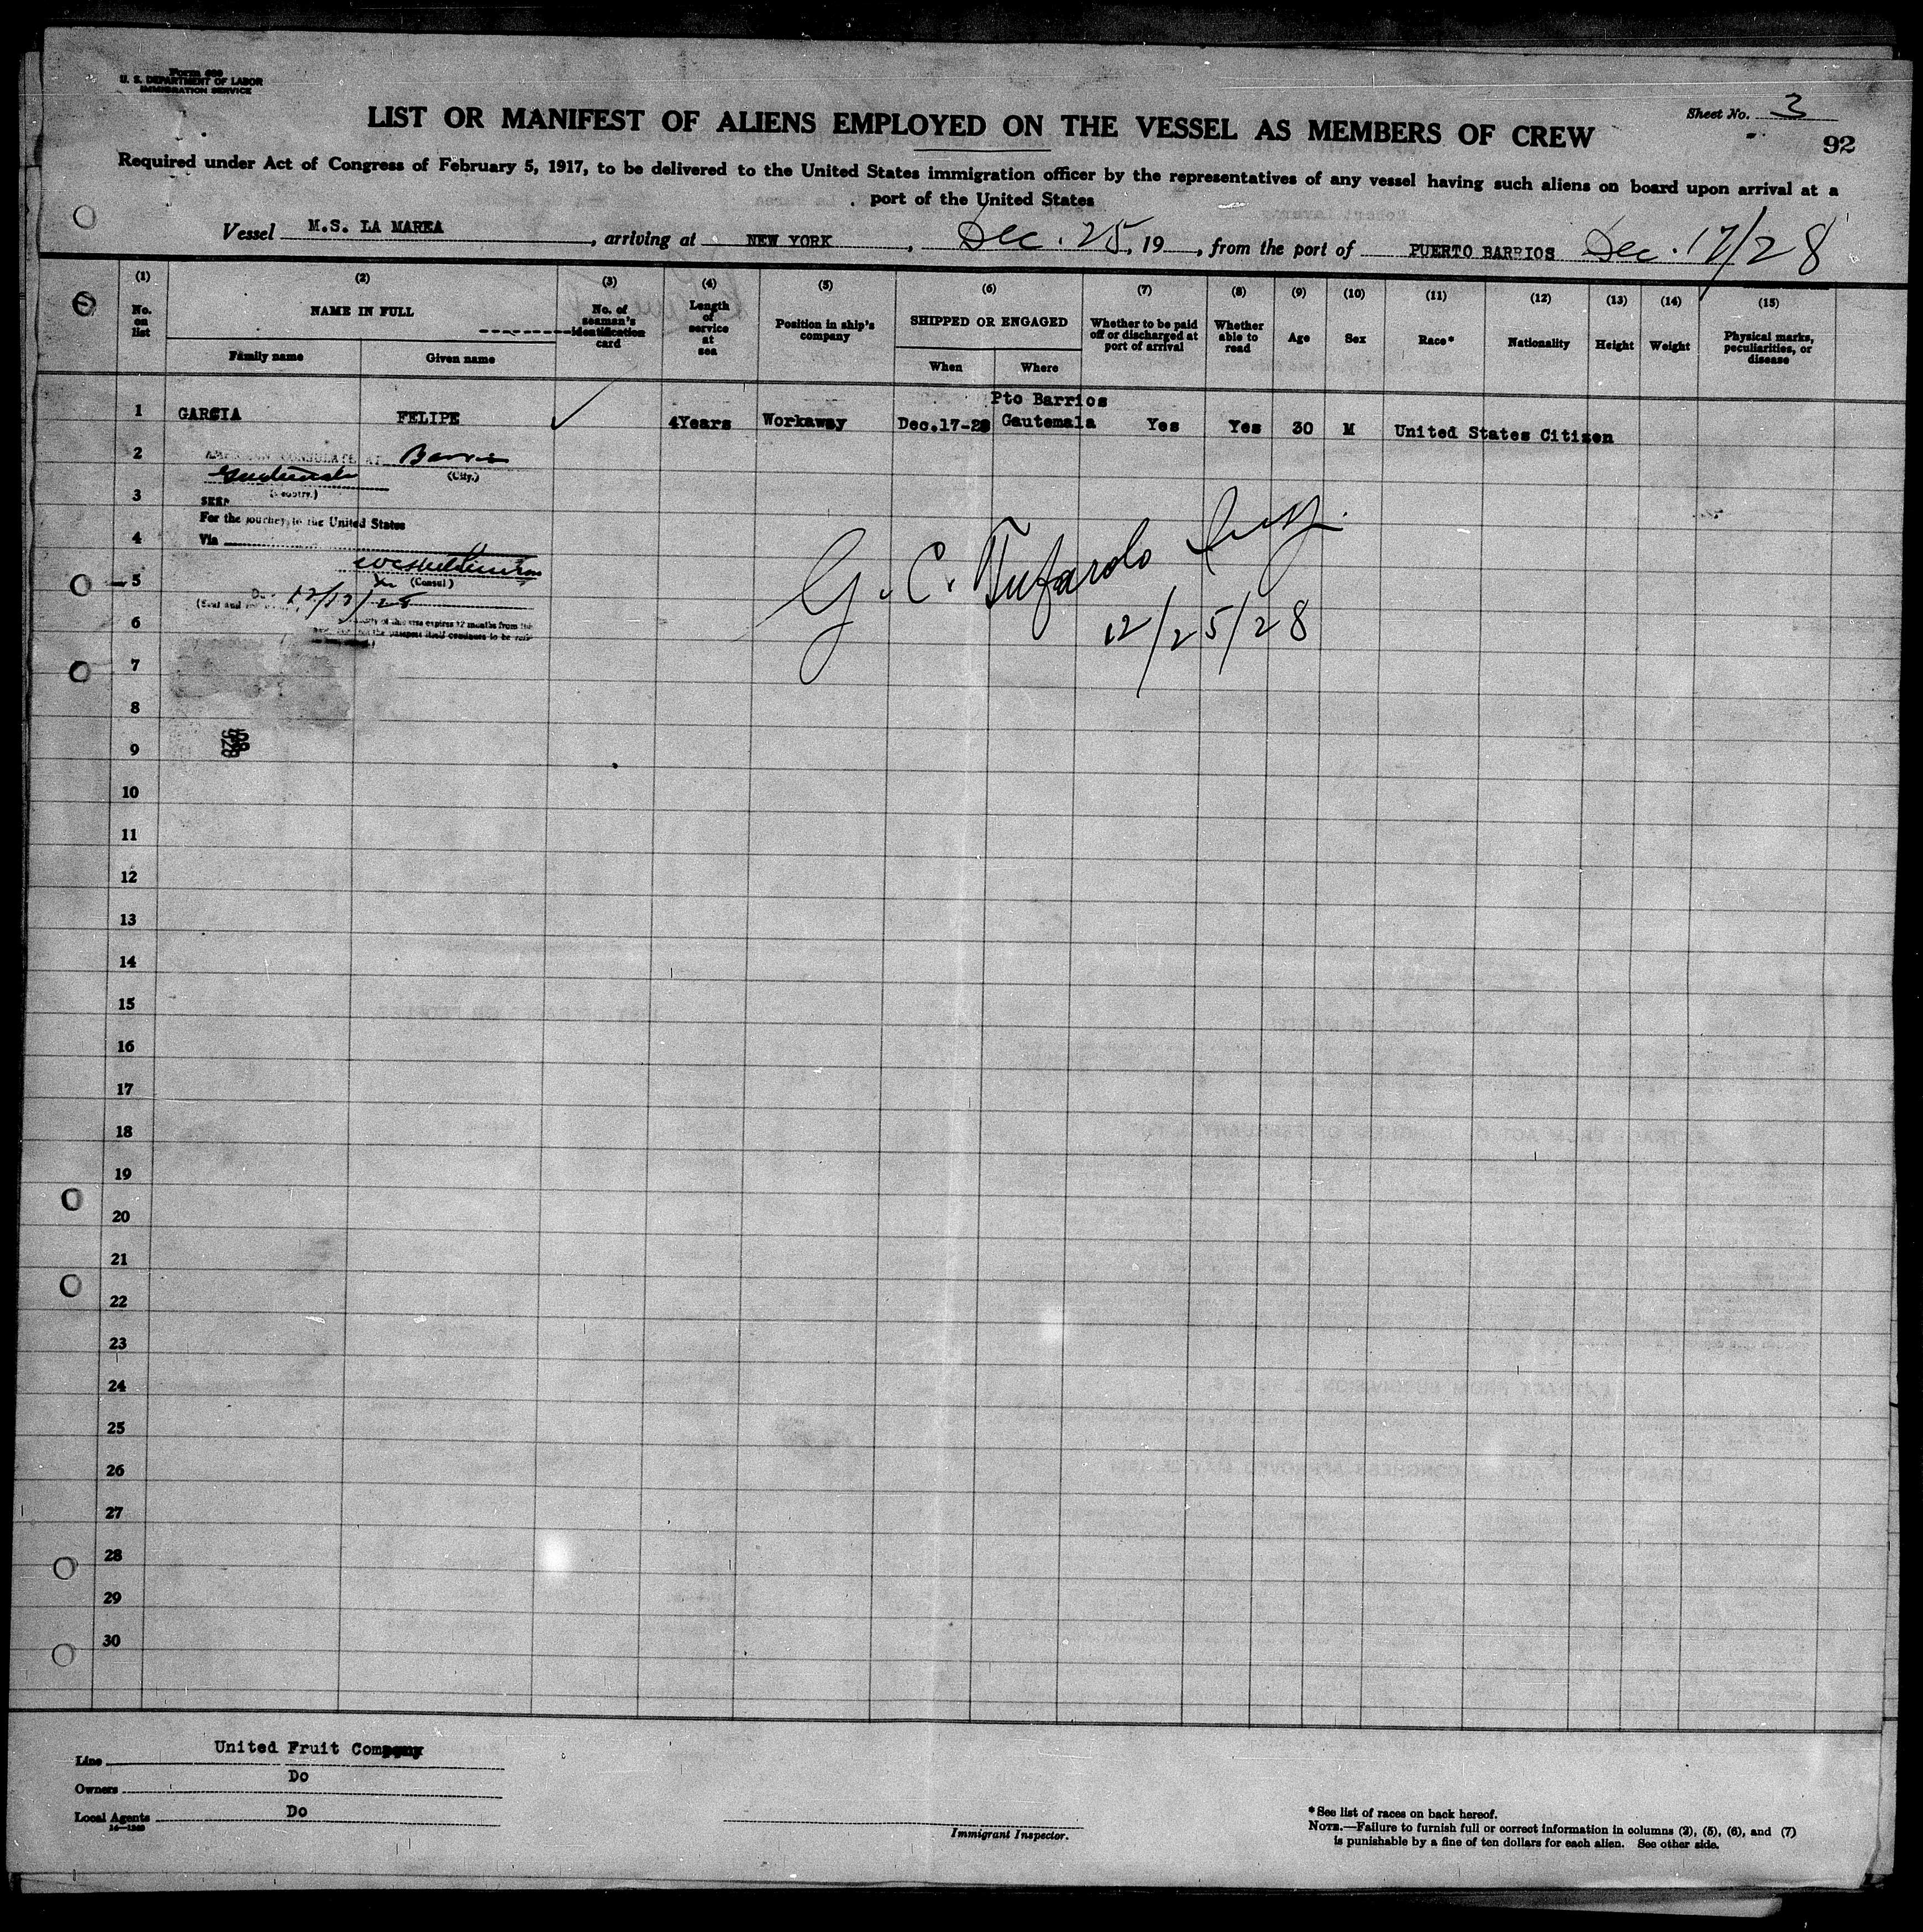 Form 689
U. S. DEPARTMENT OF LABOR
IMMIGRATION SERVICE
Sheet No. 3
LIST OR MANIFEST OF ALIENS EMPLOYED ON THE VESSEL AS MEMBERS OF CREW
92
Required under Act of Congress of February 5, 1917, to be delivered to the United States immigration officer by the representatives of any vessel having such aliens on board upon arrival at a
port of the United States
Vessel M.S. LA MAREA, arriving at NEW YORK, Dec. 25, 19 , from the port of PUERTO BARRIOS Dec. 17/28
(1) (2) (3) (4) (5) (6) (7) (8) (9) (10) (11) (12) (13) (14) (15)
No. on list
NAME IN FULL
Family name
Given name
No. of seaman's identification card
Length of service at sea
Position in ship's company
SHIPPED OR ENGAGED
When
Where
Whether to be paid off or discharged at port of arrival
Whether able to read
Age
Sex
Race*
Nationality
Height
Weight
Physical marks, peculiarities, or disease
Pto Barrios
1 GARCIA FELIPE 4Years Workaway Dec.17-28 Gautemala Yes Yes 30 M United States Citizen
2 AMERICAN CONSULATE AT Barrios
Guatemala (City.)
3 (Country.)
SEEN
For the journey to the United States
4 Via
(Consul)
5
12/17/28
6
G. C. Tufarolo Insp.
12/25/28
7
8
9
10
11
12
13
14
15
16
17
18
19
20
21
22
23
24
25
26
27
28
29
30
Line United Fruit Company
Owners Do
Local Agents Do
Immigrant Inspector.
*See list of races on back hereof.
NOTE.—Failure to furnish full or correct information in columns (2), (5), (6), and (7)
is punishable by a fine of ten dollars for each alien. See other side.